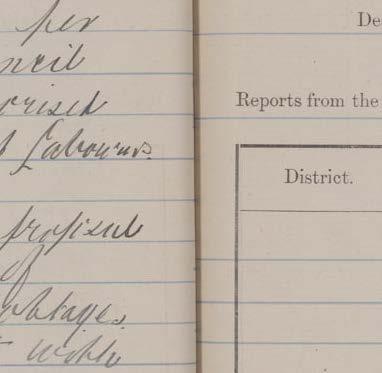 per
ncil
rised
Labourers.
proposal
of
ottages.
with
De
Reports from the
District.